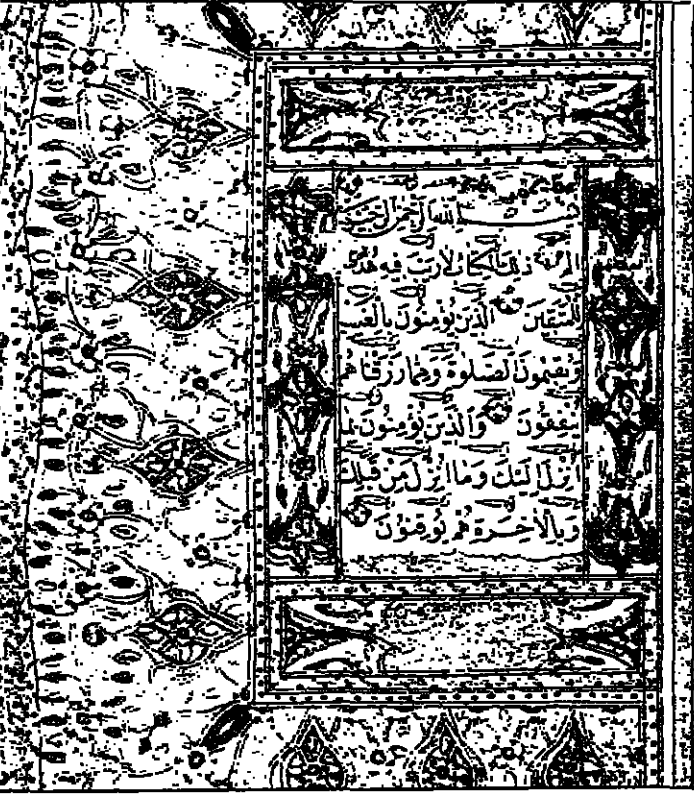 بسم الله الرحمن الرحيم
الم ذلك الكتاب لا ريب فيه هدى
للمتقين الذين يؤمنون بالغيب
ويقيمون الصلوة ومما رزقناهم
ينفقون والذين يؤمنون بما
انزل اليك وما انزل من قبلك
وبالاخرة هم يوقنون